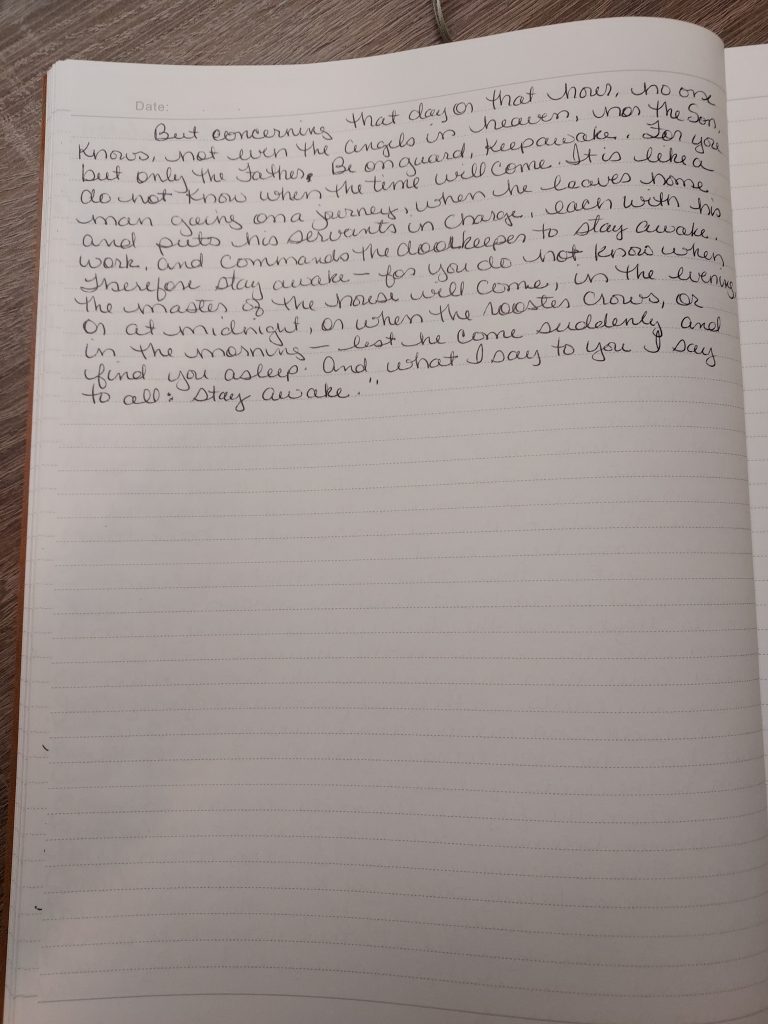 Date:
But concerning that day or that hour, no one
knows, not even the angels in heaven, nor the Son,
but only the Father. Be on guard, keep awake. For you
do not know when the time will come. It is like a
man going on a journey, when he leaves home
and puts his servants in charge, each with his
work, and commands the doorkeeper to stay awake.
Therefore stay awake - for you do not know when
the master of the house will come, in the evening,
or at midnight, or when the rooster crows, or
in the morning - lest he come suddenly and
find you asleep. And what I say to you I say
to all: stay awake."